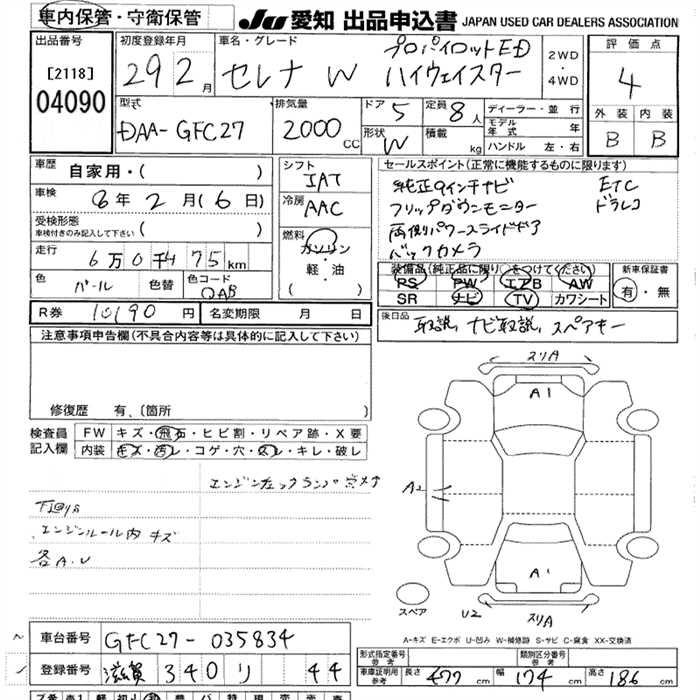 車内保管・守衛保管
JU 愛知 出品申込書 JAPAN USED CAR DEALERS ASSOCIATION
出品番号
[2118]
04090
初度登録年月
29 2月
車名・グレード
プロパイロットED
セレナ W ハイウェイスター
2WD
・
4WD
評価点
4
外装 内装
B B
型式
DAA-GFC27
排気量
2000 CC
ドア 5
形状 W
定員 8人
積載 kg
ディーラー・並行
モデル年式
ハンドル 左・右
車歴 自家用・( )
車検 8年2月(6日)
受検形態
車検付きのみ記入して下さい ( )
走行
6万0千475km
色 パール 色替
色コード QAB
シフト
IAT
冷房
AAC
燃料
ガソリン
・
軽・油
( )
セールスポイント(正常に機能するものに限ります)
純正9インチナビ ETC
フリップダウンモニター ドラレコ
両側パワースライドドア
バックカメラ
装備品(純正品に限り○をつけてください)
PS PW エアB AW
SR ナビ TV カワシート
新車保証書
有・無
R券 10190円
名変期限 月 日
後日品 取説, ナビ取説, スペアキー
注意事項申告欄(不具合内容等は具体的に記入して下さい)
修復歴 有、(箇所 )
検査員記入欄
FW キズ・飛石・ヒビ割・リペア跡・X要
内装 キズ・汚レ・コゲ・穴・スレ・キレ・破レ
エンジンチェックランプ点灯
下廻りS
エンジンルーム内 キズ
各A.U
スリA
A1
A2
A1
スペア
U2
スリA
A-キズ E-エクボ U-凹み W-補修跡 S-サビ C-腐食 XX-交換済
車台番号 GFC27-035834
登録番号 滋賀 340 リ 44
形式指定番号
参考
類別区分番号
参考
車庫証明用
参考
長さ 477cm 幅 174cm 高さ 186cm